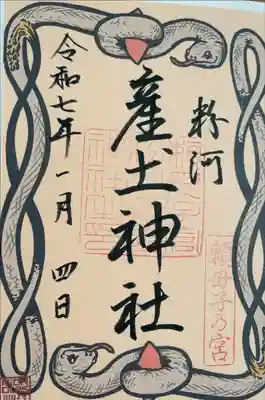 粉河
産土神社
令和七年一月四日
頼母子乃宮